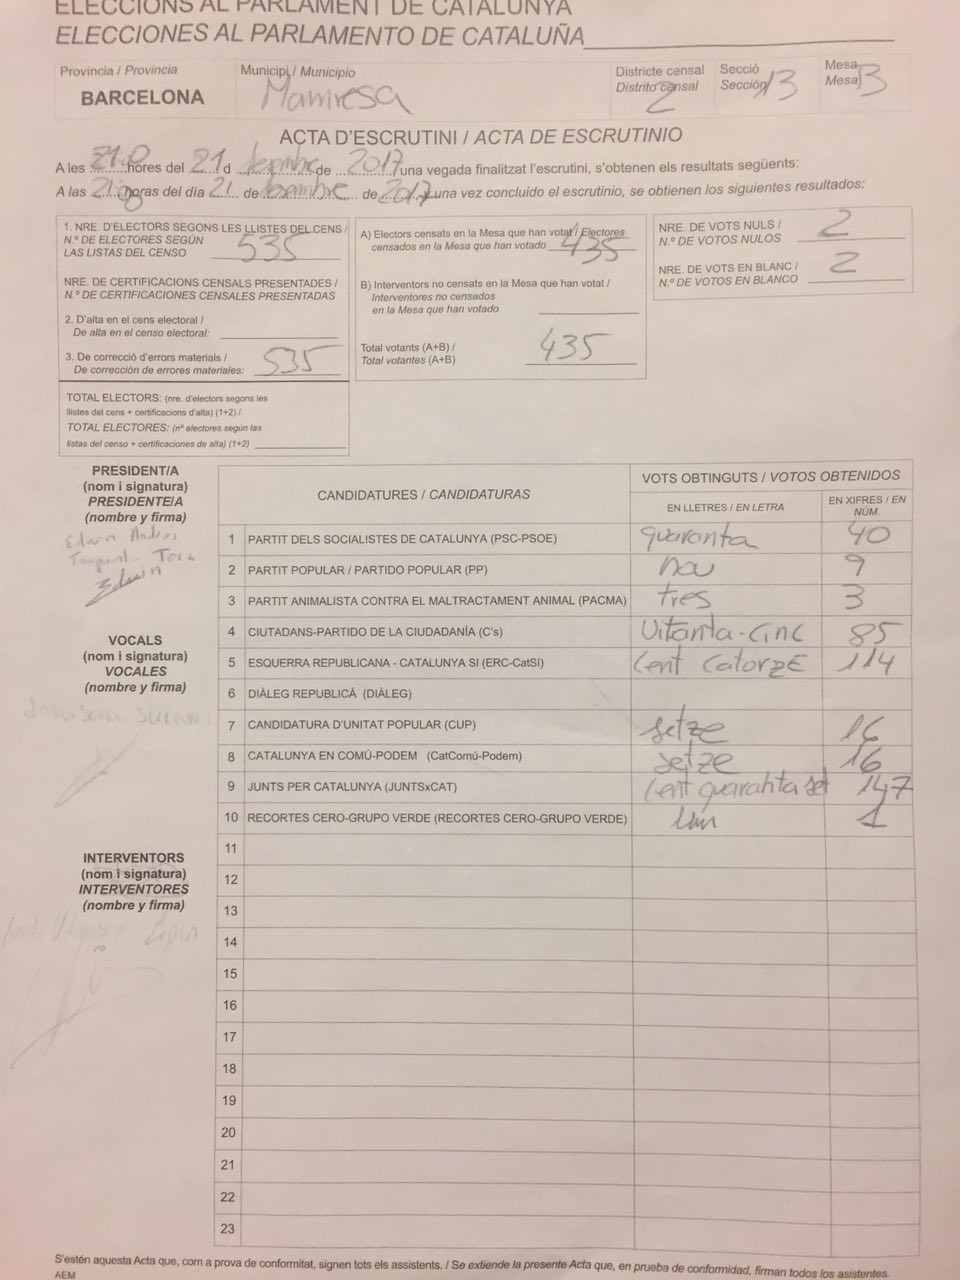 ELECCIONS AL PARLAMENT DE CATALUNYA
ELECCIONES AL PARLAMENTO DE CATALUÑA
Província / Provincia
BARCELONA
Municipi / Municipio
Manresa
Districte censal
Distrito censal
2
Secció
Sección
13
Mesa
Mesa
B
ACTA D'ESCRUTINI / ACTA DE ESCRUTINIO
A les 21:0 hores del 21 d desembre de 2017 una vegada finalitzat l'escrutini, s'obtenen els resultats següents:
A las 21:00 horas del día 21 de desembre de 2017 y una vez concluido el escrutinio, se obtienen los siguientes resultados:
1. NRE. D'ELECTORS SEGONS LES LLISTES DEL CENS /
N.º DE ELECTORES SEGÚN
LAS LISTAS DEL CENSO 535
NRE. DE CERTIFICACIONS CENSALS PRESENTADES /
N.º DE CERTIFICACIONES CENSALES PRESENTADAS
2. D'alta en el cens electoral /
De alta en el censo electoral:
3. De correcció d'errors materials /
De corrección de errores materiales: 535
TOTAL ELECTORS: (nre. d'electors segons les
llistes del cens + certificacions d'alta) (1+2) /
TOTAL ELECTORES: (nº electores según las
listas del censo + certificaciones de alta) (1+2)
A) Electors censats en la Mesa que han votat / Electores
censados en la Mesa que han votado 435
B) Interventors no censats en la Mesa que han votat /
Interventores no censados
en la Mesa que han votado
Total votants (A+B) /
Total votantes (A+B) 435
NRE. DE VOTS NULS /
N.º DE VOTOS NULOS 2
NRE. DE VOTS EN BLANC /
N.º DE VOTOS EN BLANCO 2
PRESIDENT/A
(nom i signatura)
PRESIDENTE/A
(nombre y firma)
Edwin Andres
Tora
Edwin
VOCALS
(nom i signatura)
VOCALES
(nombre y firma)
INTERVENTORS
(nom i signatura)
INTERVENTORES
(nombre y firma)
CANDIDATURES / CANDIDATURAS
VOTS OBTINGUTS / VOTOS OBTENIDOS
EN LLETRES / EN LETRA
EN XIFRES / EN NÚM.
1 PARTIT DELS SOCIALISTES DE CATALUNYA (PSC-PSOE) quaranta 40
2 PARTIT POPULAR / PARTIDO POPULAR (PP) nou 9
3 PARTIT ANIMALISTA CONTRA EL MALTRACTAMENT ANIMAL (PACMA) tres 3
4 CIUTADANS-PARTIDO DE LA CIUDADANÍA (C's) Vitanta-cinc 85
5 ESQUERRA REPUBLICANA - CATALUNYA SI (ERC-CatSí) Cent CatorzE 114
6 DIÀLEG REPUBLICÀ (DIÀLEG)
7 CANDIDATURA D'UNITAT POPULAR (CUP) setze 16
8 CATALUNYA EN COMÚ-PODEM (CatComú-Podem) setze 16
9 JUNTS PER CATALUNYA (JUNTSxCAT) Cent quaranta set 147
10 RECORTES CERO-GRUPO VERDE (RECORTES CERO-GRUPO VERDE) Un 1
11
12
13
14
15
16
17
18
19
20
21
22
23
S'estén aquesta Acta que, com a prova de conformitat, signen tots els assistents. / Se extiende la presente Acta que, en prueba de conformidad, firman todos los asistentes.
AEM